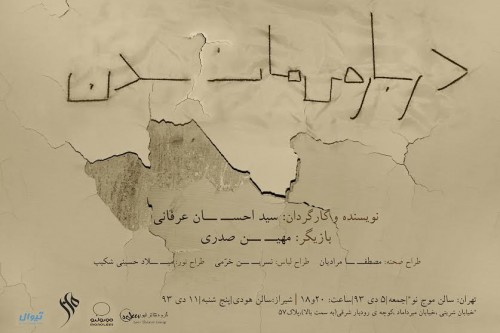 درباره‌ی مان‌ شدن
نویسنده و کارگردان: سید احسان عرفانی
بازیگر: مهین صدری
طراح صحنه: مصطفا مرادیان طراح لباس: نسرین خرّمی طراح نور: میلاد حسینی شکیب
تهران: سالن موج نو*|جمعه|۵ دی ۹۳|ساعت: ۲۰و۱۸ | شیراز:سالن هودی|پنج شنبه|۱۱ دی ۹۳
*خیابان شریعتی ،خیابان میرداماد ،کوچه ی رودبار شرقی(به سمت بالا)،پلاک۵۷
تیوال